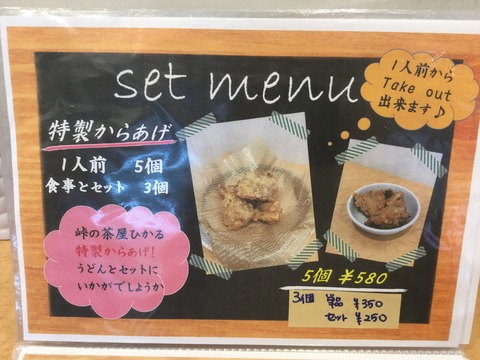 set menu
1人前から
Take out
出来ます♪
特製からあげ
1人前 5個
食事とセット 3個
峠の茶屋ひかる
特製からあげ!
うどんとセットに
いかがでしょうか
5個 ¥580
3個 単品 ¥350
セット ¥250